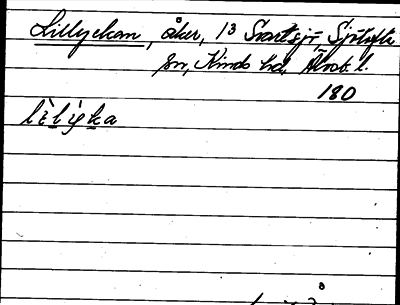 Lillyckan, åker, 1³ Svartsjö, Sjötofta
sn, Kinds hd, Älvsb. l.
180
lìlỳka